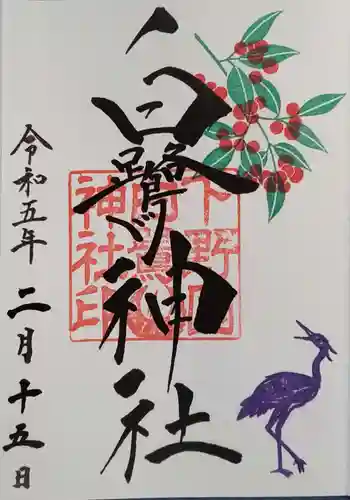 白鷺神社
下野國
鷺神社印
令和五年二月十五日